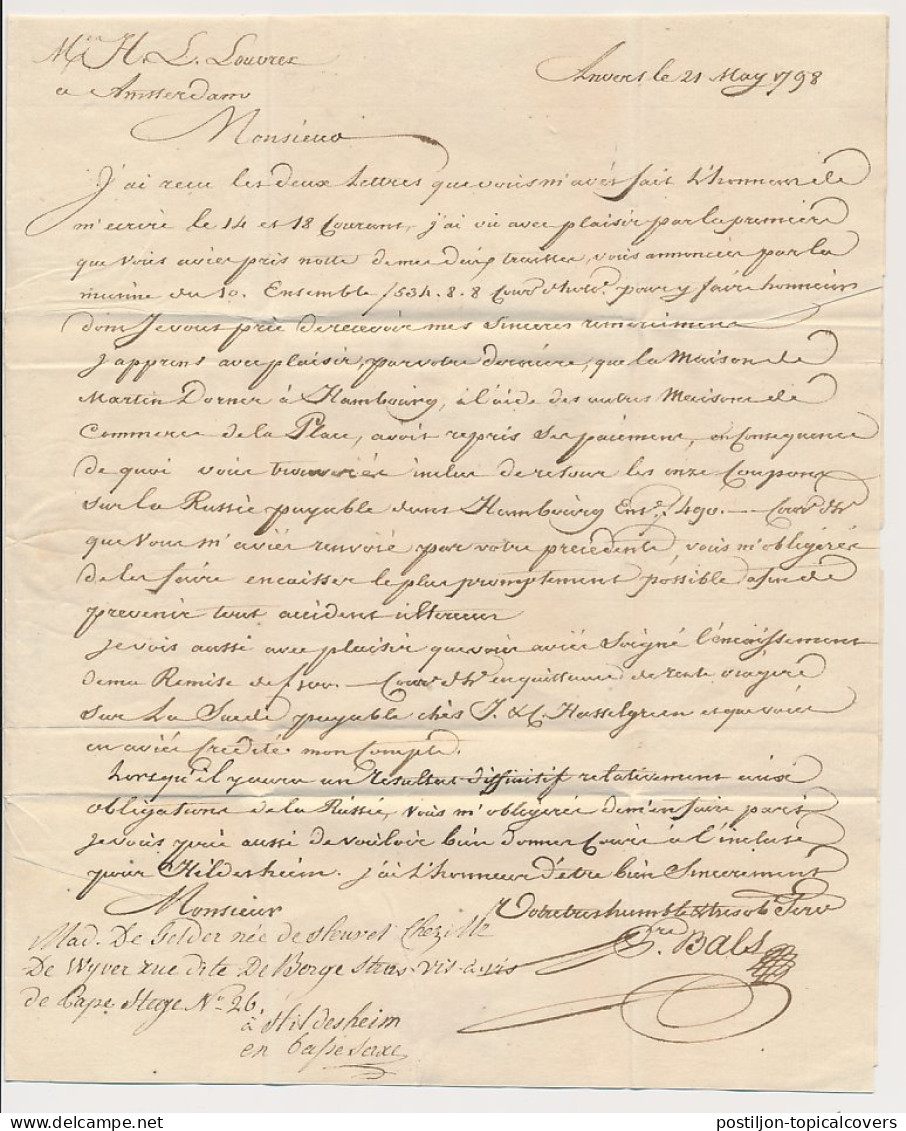 Mr. H. L. Louvrex
a Amsterdam
Anvers le 21 May 1798
Monsieur
J'ai recu les deux Lettres que vous m'avés fait L'honneur de
m'ecrire le 14 et 18 Courant, j'ai vu avec plaisir par la premiere
que vous aviés pris notte de mes deux traittes, vous annonciés par la
mienne du 10. Ensemble f534.8.8 Cour. d'holl. pour y faire honneur
dont Je vous prie de recevoir mes Sinceres remercimens
j'apprens avec plaisir, par votre derniere, que la Maison de
Martin Dorner à Hambourg, à l'aide des autres Maisons de
Commerce de la Place, avoit repris Ses paiemens, en Consequence
de quoi vous trouverés inclus de retour les onze Coupons
sur la Russie payable dans Hambourg Ens. f490.— Cour. d'h.
que Vous m'aviés renvoié par votre precedente, vous m'obligerés
de les faire encaisser le plus promptement possible afin de
prevenir tout accident ulterieur
je vois aussi avec plaisir que vous aviés Soigné l'encaissement
de ma Remise de f100.— Cour. d'h. en quittance de rente viagere
sur La Suede payable chés J. & C. Hasselgreen et que vous
en aviés Credité mon Compte.
Lorsqu'il y aura un resultat diffinitif relativement aux
obligations de la Russie, vous m'obligerés de m'en faire part
je vous prie aussi de vouloir bien donner Cours à l'incluse
pour Hildesheim. j'ai L'honneur d'être bien Sincerement
Monsieur
Votre tres humble & tres ob. Serv
Bals
Mad. De Gelder née de Heuvel Chez
De Wyver rue dite De Borge Stras vis-à-vis
de Cape Stege No. 26
à Hildesheim
en basse Saxe
postiljon-topicalcovers